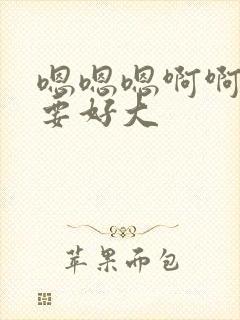 嗯嗯嗯啊啊
要好大
苹果而包